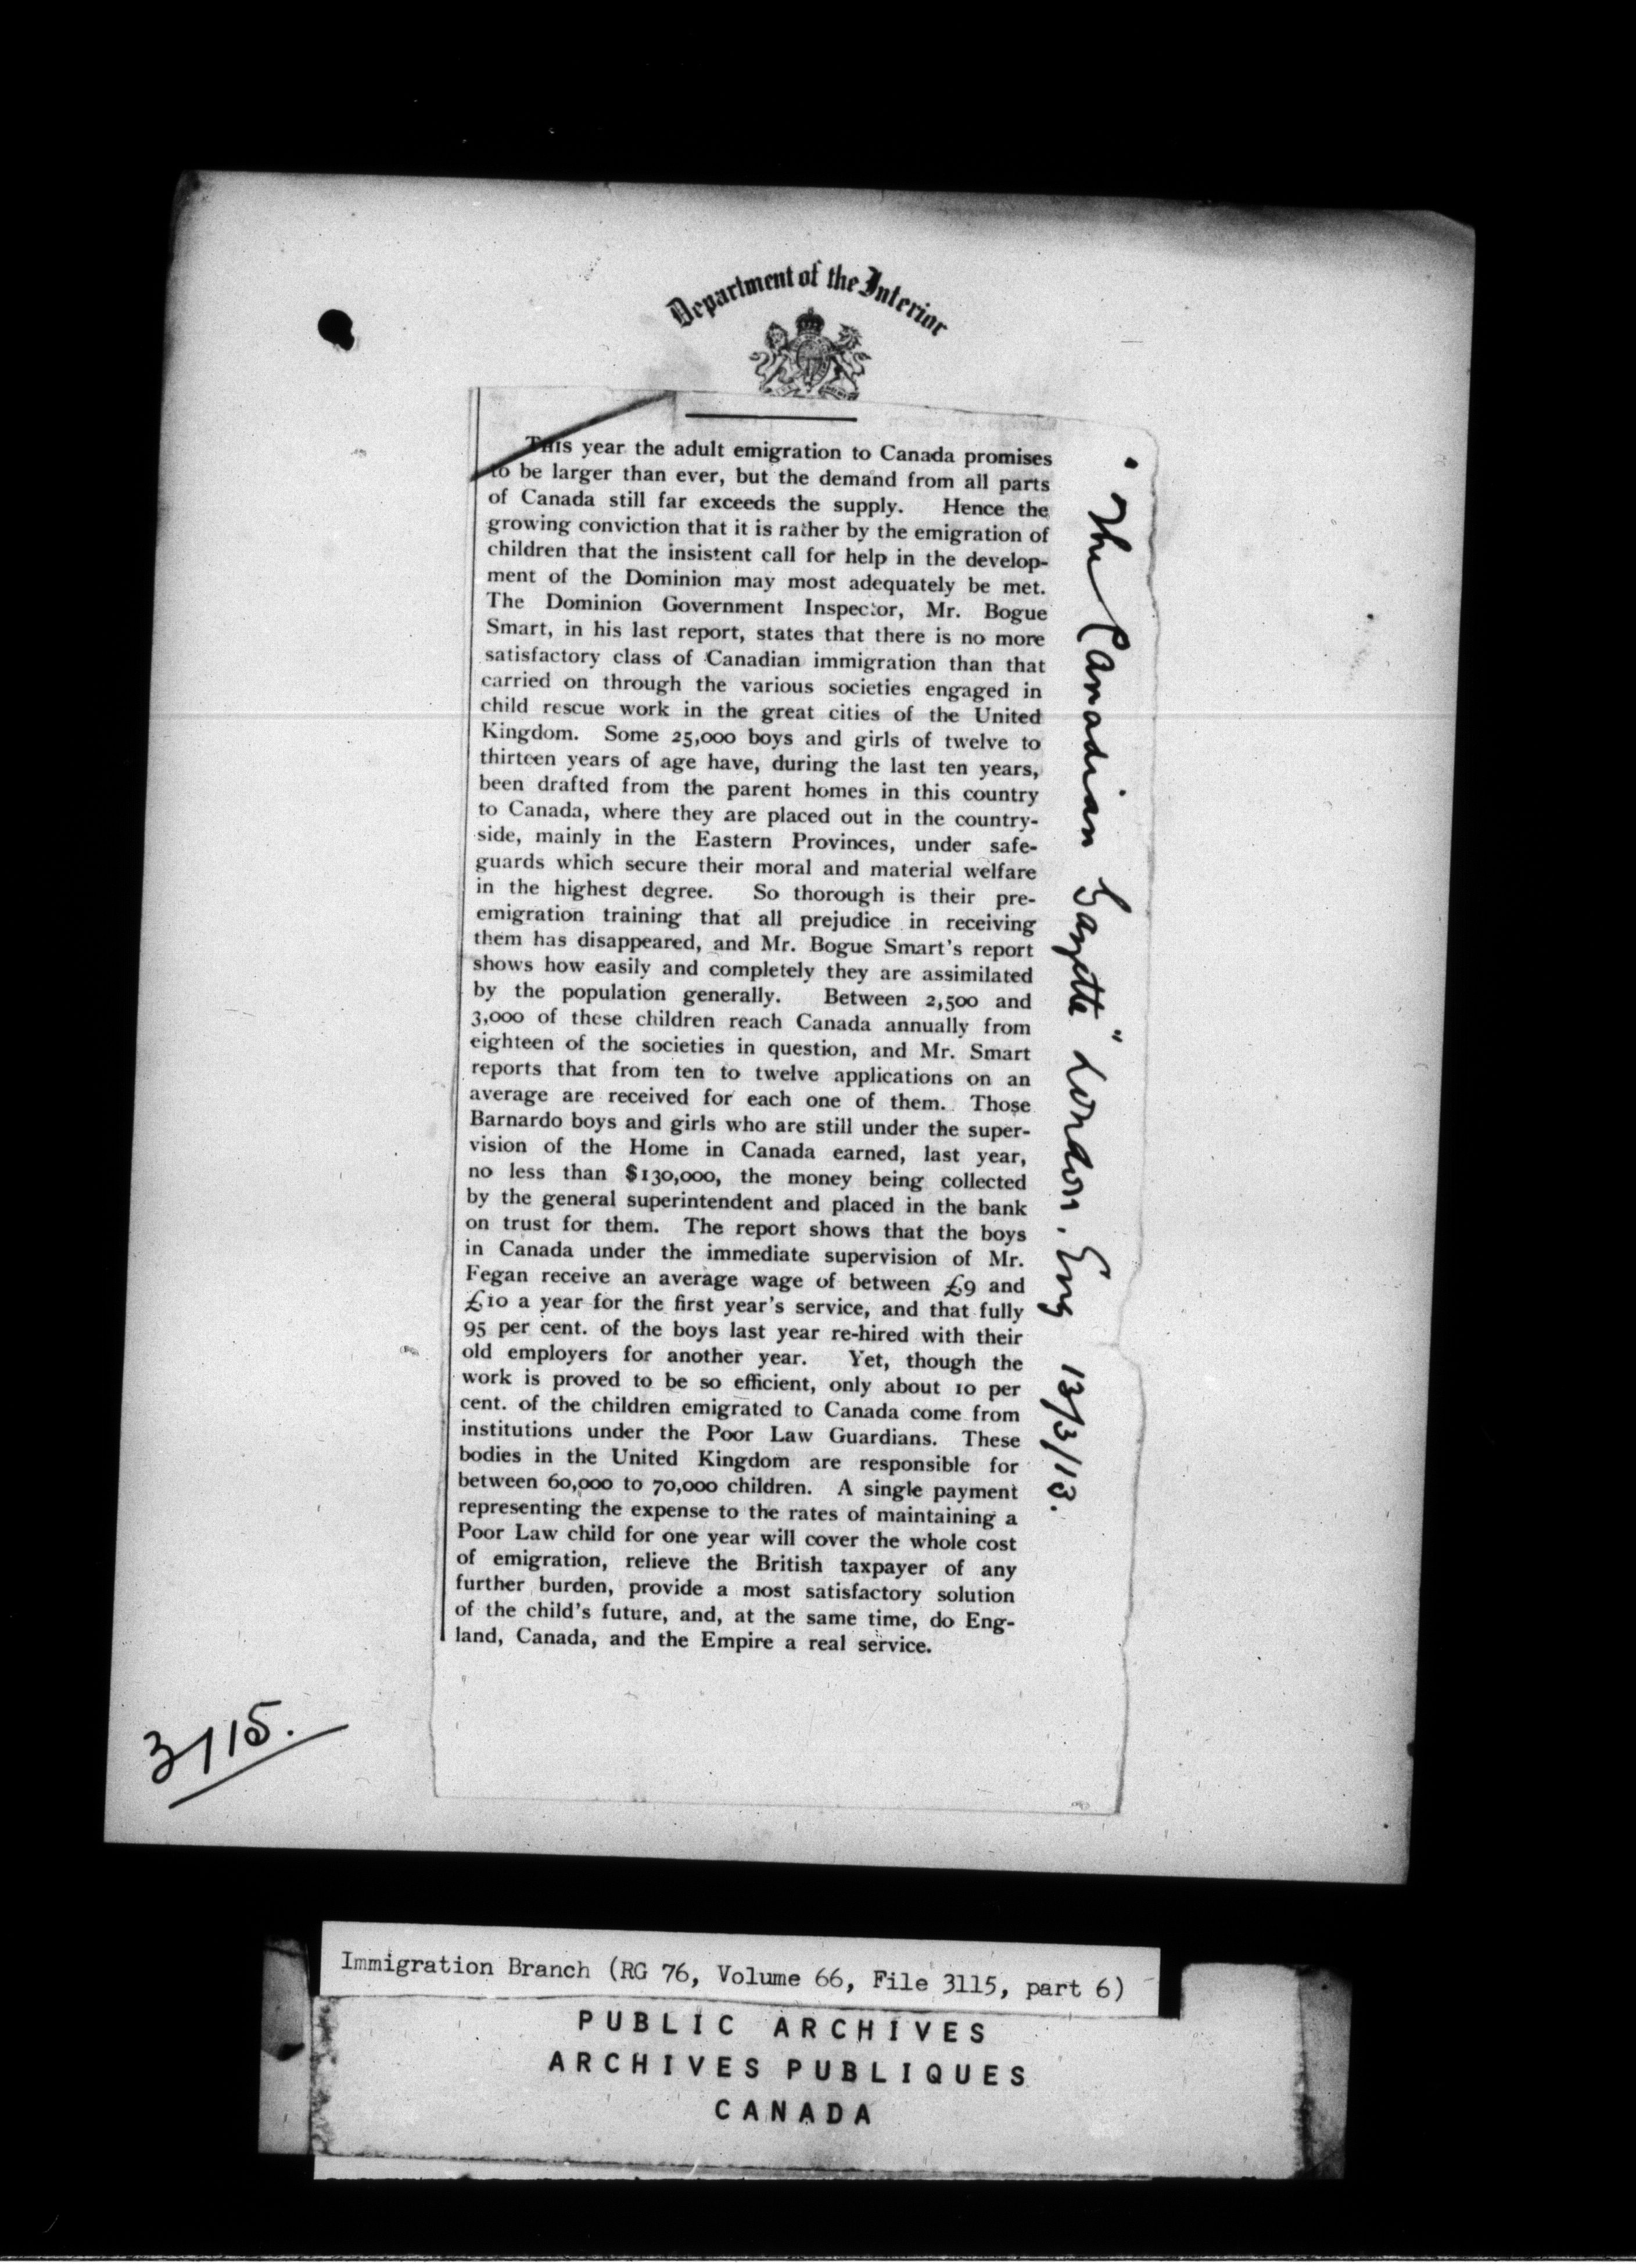 Department of the Interior
THIS year the adult emigration to Canada promises
to be larger than ever, but the demand from all parts
of Canada still far exceeds the supply. Hence the
growing conviction that it is rather by the emigration of
children that the insistent call for help in the develop-
ment of the Dominion may most adequately be met.
The Dominion Government Inspector, Mr. Bogue
Smart, in his last report, states that there is no more
satisfactory class of Canadian immigration than that
carried on through the various societies engaged in
child rescue work in the great cities of the United
Kingdom. Some 25,000 boys and girls of twelve to
thirteen years of age have, during the last ten years,
been drafted from the parent homes in this country
to Canada, where they are placed out in the country-
side, mainly in the Eastern Provinces, under safe-
guards which secure their moral and material welfare
in the highest degree. So thorough is their pre-
emigration training that all prejudice in receiving
them has disappeared, and Mr. Bogue Smart's report
shows how easily and completely they are assimilated
by the population generally. Between 2,500 and
3,000 of these children reach Canada annually from
eighteen of the societies in question, and Mr. Smart
reports that from ten to twelve applications on an
average are received for each one of them. Those
Barnardo boys and girls who are still under the super-
vision of the Home in Canada earned, last year,
no less than $130,000, the money being collected
by the general superintendent and placed in the bank
on trust for them. The report shows that the boys
in Canada under the immediate supervision of Mr.
Fegan receive an average wage of between £9 and
£10 a year for the first year's service, and that fully
95 per cent. of the boys last year re-hired with their
old employers for another year. Yet, though the
work is proved to be so efficient, only about 10 per
cent. of the children emigrated to Canada come from
institutions under the Poor Law Guardians. These
bodies in the United Kingdom are responsible for
between 60,000 to 70,000 children. A single payment
representing the expense to the rates of maintaining a
Poor Law child for one year will cover the whole cost
of emigration, relieve the British taxpayer of any
further burden, provide a most satisfactory solution
of the child's future, and, at the same time, do Eng-
land, Canada, and the Empire a real service.
"The Canadian Gazette" London. Eng 13/3/13.
3115.
Immigration Branch (RG 76, Volume 66, File 3115, part 6)
PUBLIC ARCHIVES
ARCHIVES PUBLIQUES
CANADA